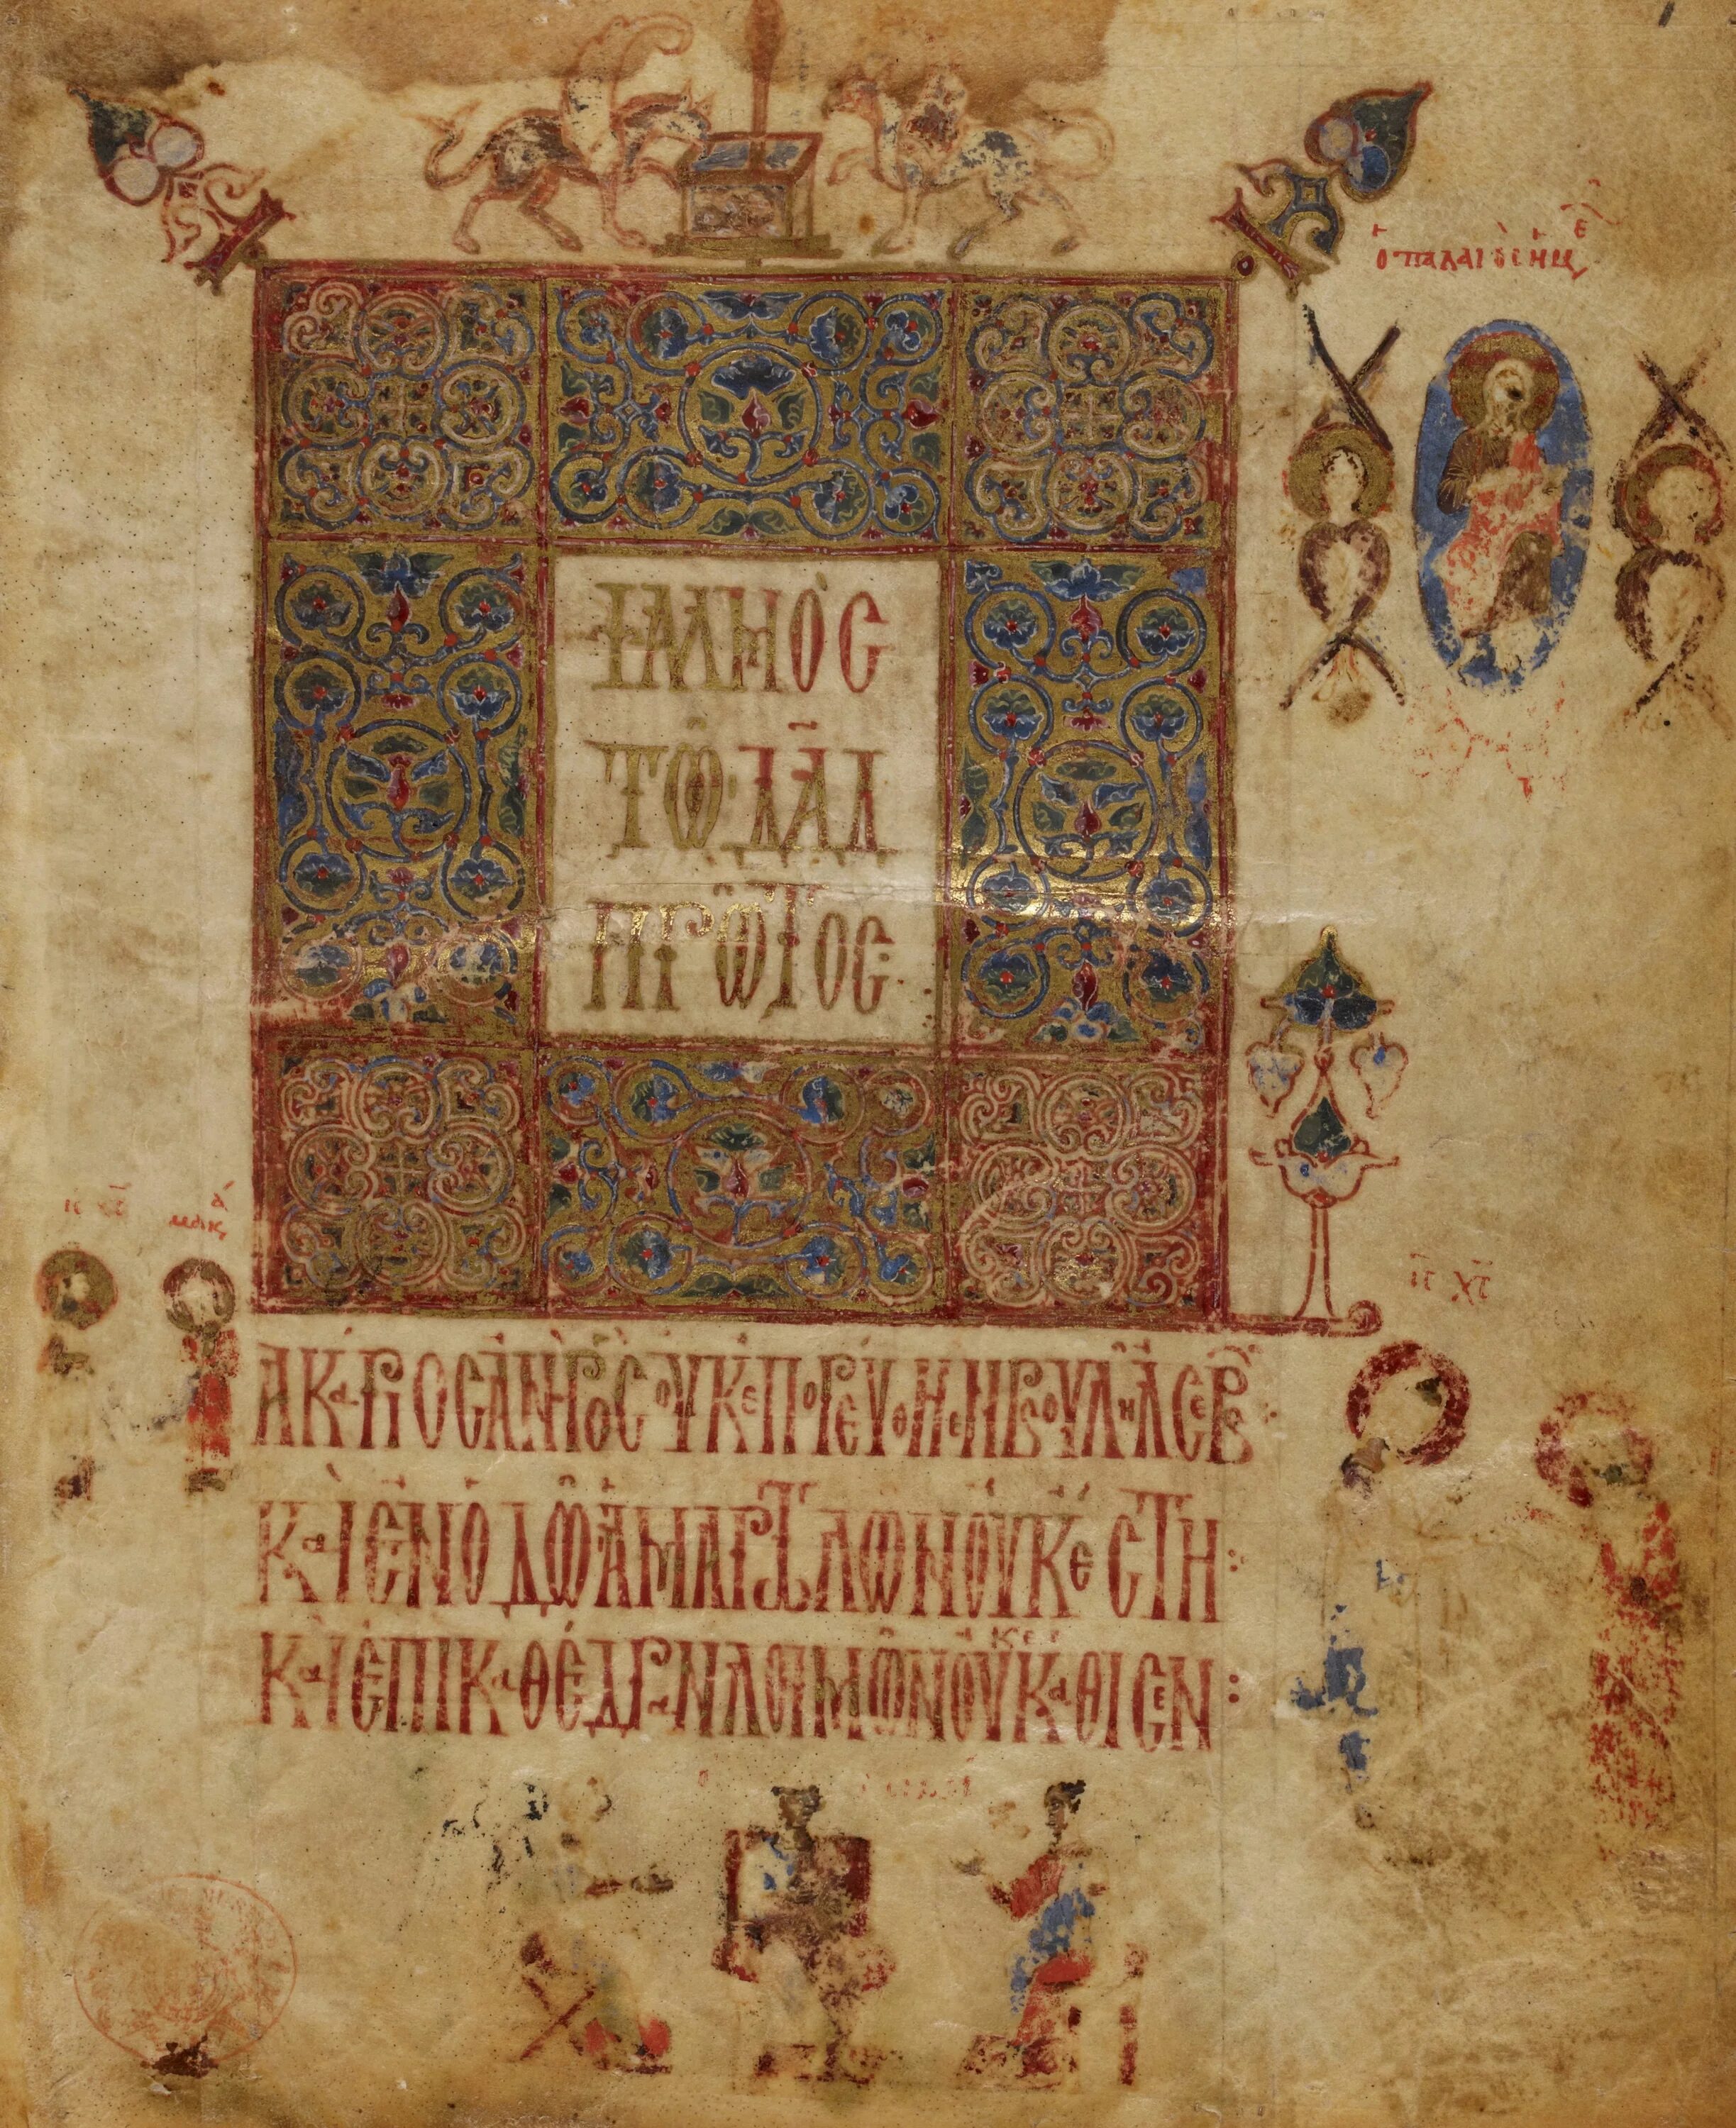 ὁ παλαιὸς ἡμε
ΨΑΛΜΟΣ
ΤῶΔΑΔ
ΠΡῶΤΟΣ
ΙΣ ΧΣ
μακα
ΙΣ ΧΣ
ΑΚΑΡΙΟΣ ΑΝΗΡ ΟΣ ΟΥΚ ΕΠΟΡΕΥΘΗ ΕΝ ΒΟΥΛΗ ΑΣΕΒ
ΚΑΙ ΕΝ ΟΔΩ ΑΜΑΡΤΩΛΩΝ ΟΥΚ ΕΣΤΗ:
ΚΑΙ ΕΠΙ ΚΑΘΕΔΡΑΝ ΛΟΙΜΩΝ ΟΥΚ ΕΚΑΘΙΣΕΝ: